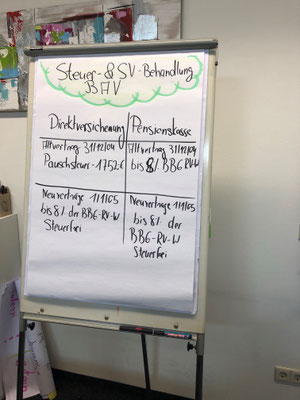 Steuer- & SV-Behandlung
BAV
Direktversicherung
Altvertrag 31/12/04
Pauschsteuer - 1752,-€
Neuverträge 1/1/05
bis 8% der BBG-RV-W
Steuerfrei
Pensionskasse
Altvertrag 31/12/04
bis 8% BBG RV-W
Neuverträge 1/1/05
bis 8% der
BBG-RV-W
Steuerfrei